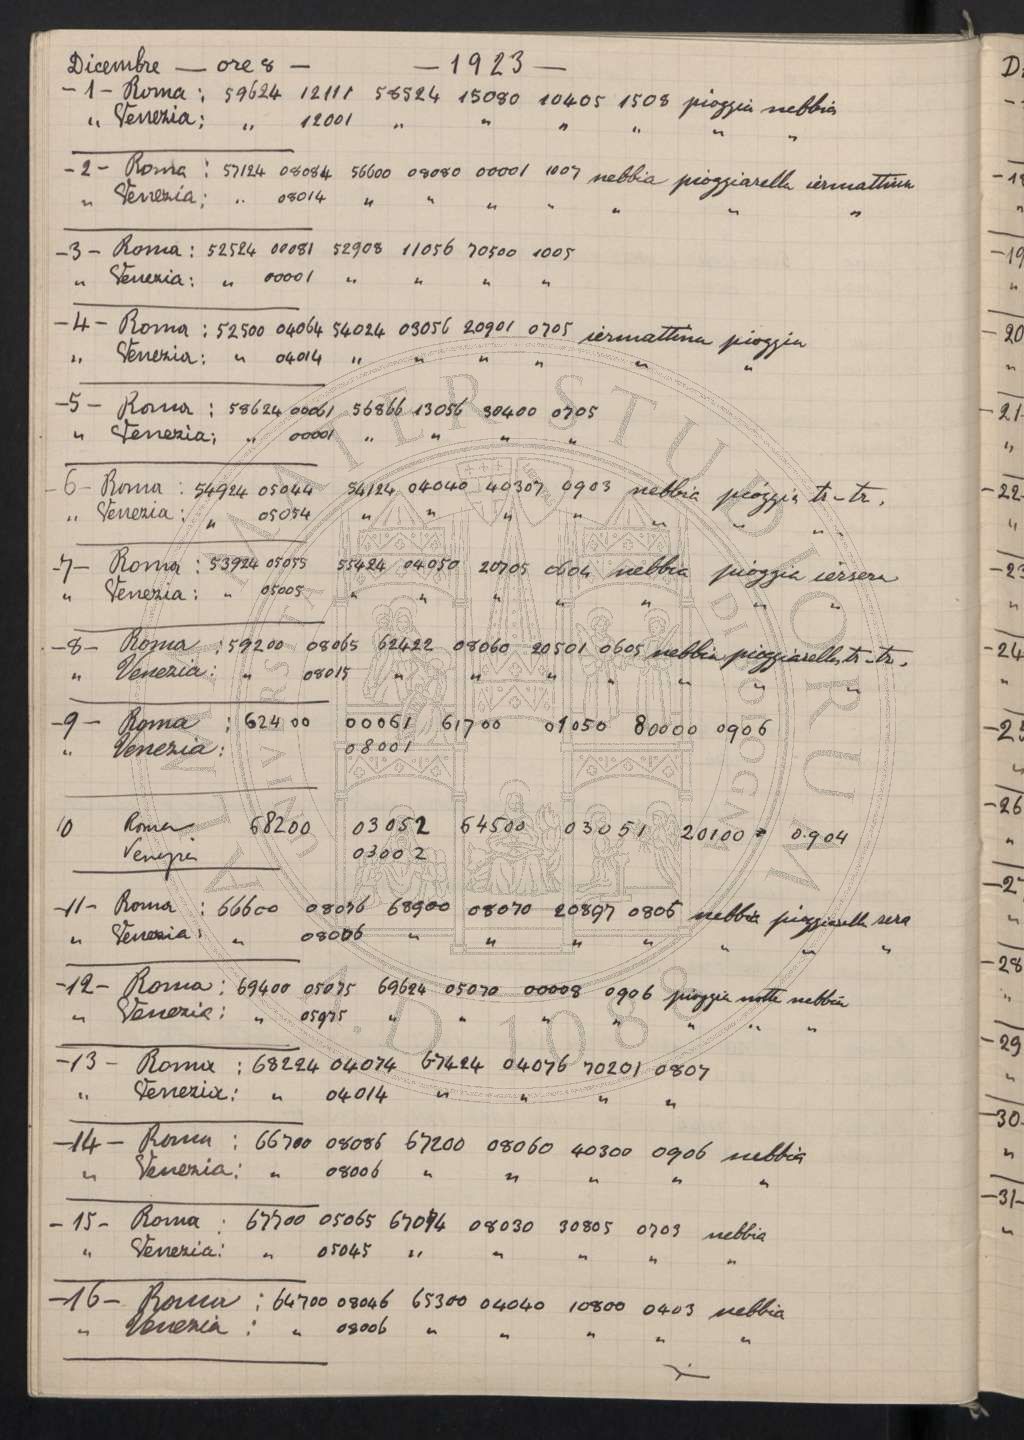 Dicembre — ore 8 — — 1923 —
- 1 - Roma : 59624 12111 58524 15080 10405 1508 pioggia nebbia
" Venezia : " 12001 " " " " " "
- 2 - Roma : 57124 08084 56600 08080 00001 1007 nebbia pioggiarella iermattina
" Venezia ; " 08014 " " " " " " "
- 3 - Roma : 52524 00081 52908 11056 70500 1005
" Venezia : " 00001 " " " "
- 4 - Roma : 52500 04064 54024 03056 20901 0705 iermattina pioggia
" Venezia : " 04014 " " " " " "
- 5 - Roma : 58624 00061 56866 13056 30400 0705
" Venezia ; " 00001 " " " "
- 6 - Roma : 54924 05044 54124 04040 40307 0903 nebbia pioggia tr - tr.
" Venezia : " 05054 " " " " " " " "
- 7 - Roma : 53924 05055 55424 04050 20705 0604 nebbia pioggia iersera
" Venezia : " 05005 " " " " " " "
- 8 - Roma : 59200 08065 62422 08060 20501 0605 nebbia pioggiarella tr - tr.
" Venezia : " 08015 " " " " " " "
- 9 - Roma : 62400 00061 61700 01050 80000 0906
" Venezia : 08001
10 Roma 68200 03052 64500 03051 20100 0904
Venezia 03002
- 11 - Roma : 66600 08076 68900 08070 20897 0805 nebbia pioggiarella sera
" Venezia : " 08006 " " " " " " "
- 12 - Roma : 69400 05075 69624 05070 00008 0906 pioggia notte nebbia
" Venezia : " 05975 " " " " " " "
- 13 - Roma : 68224 04074 67424 04076 70201 0807
" Venezia : " 04014 " " " "
- 14 - Roma : 66700 08086 67200 08060 40300 0906 nebbia
" Venezia : " 08006 " " " " "
- 15 - Roma : 67700 05065 67074 08030 30805 0703 nebbia
" Venezia : " 05045 " " " " "
- 16 - Roma : 64700 08046 65300 04040 10800 0403 nebbia
" Venezia : " 08006 " " " " "
ALMA MATER STUDIORUM
UNIVERSITÀ DI BOLOGNA
A.D. 1088
- 19
- 20
- 21-
- 22-
- 23
- 24
- 25
- 26
- 27
- 28
- 29
- 30-
- 31-